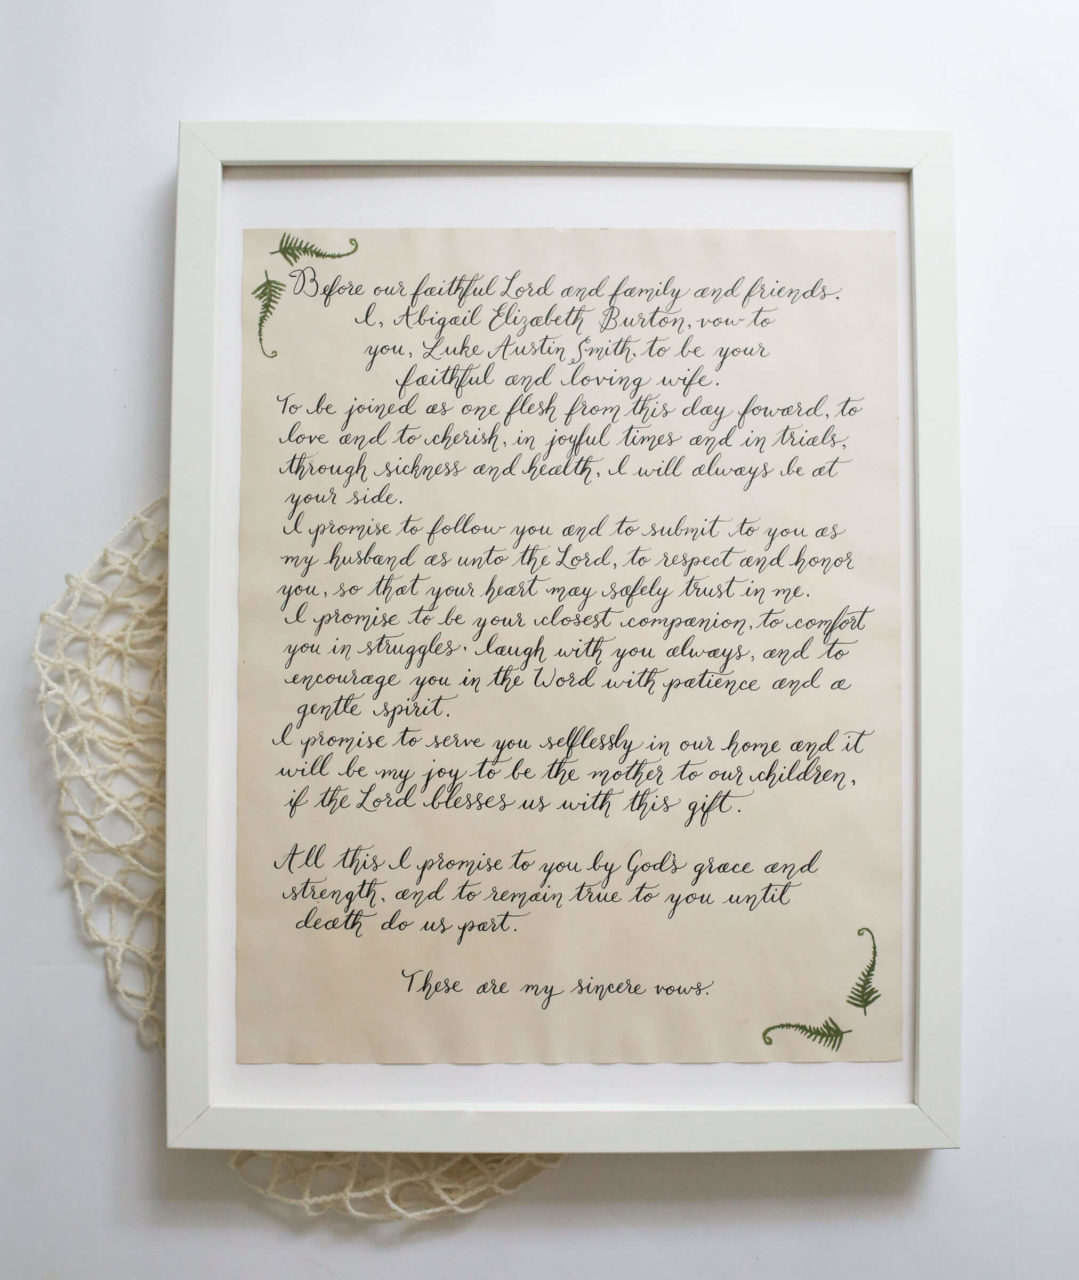 Before our faithful Lord and family and friends.
I, Abigail Elizabeth Burton, vow to
you, Luke Austin Smith, to be your
faithful and loving wife.
To be joined as one flesh from this day foward, to
love and to cherish, in joyful times and in trials,
through sickness and health, I will always be at
your side.
I promise to follow you and to submit to you as
my husband as unto the Lord, to respect and honor
you, so that your heart may safely trust in me.
I promise to be your closest companion, to comfort
you in struggles, laugh with you always, and to
encourage you in the Word with patience and a
gentle spirit.
I promise to serve you selflessly in our home and it
will be my joy to be the mother to our children,
if the Lord blesses us with this gift.
All this I promise to you by God's grace and
strength, and to remain true to you until
death do us part.
These are my sincere vows.